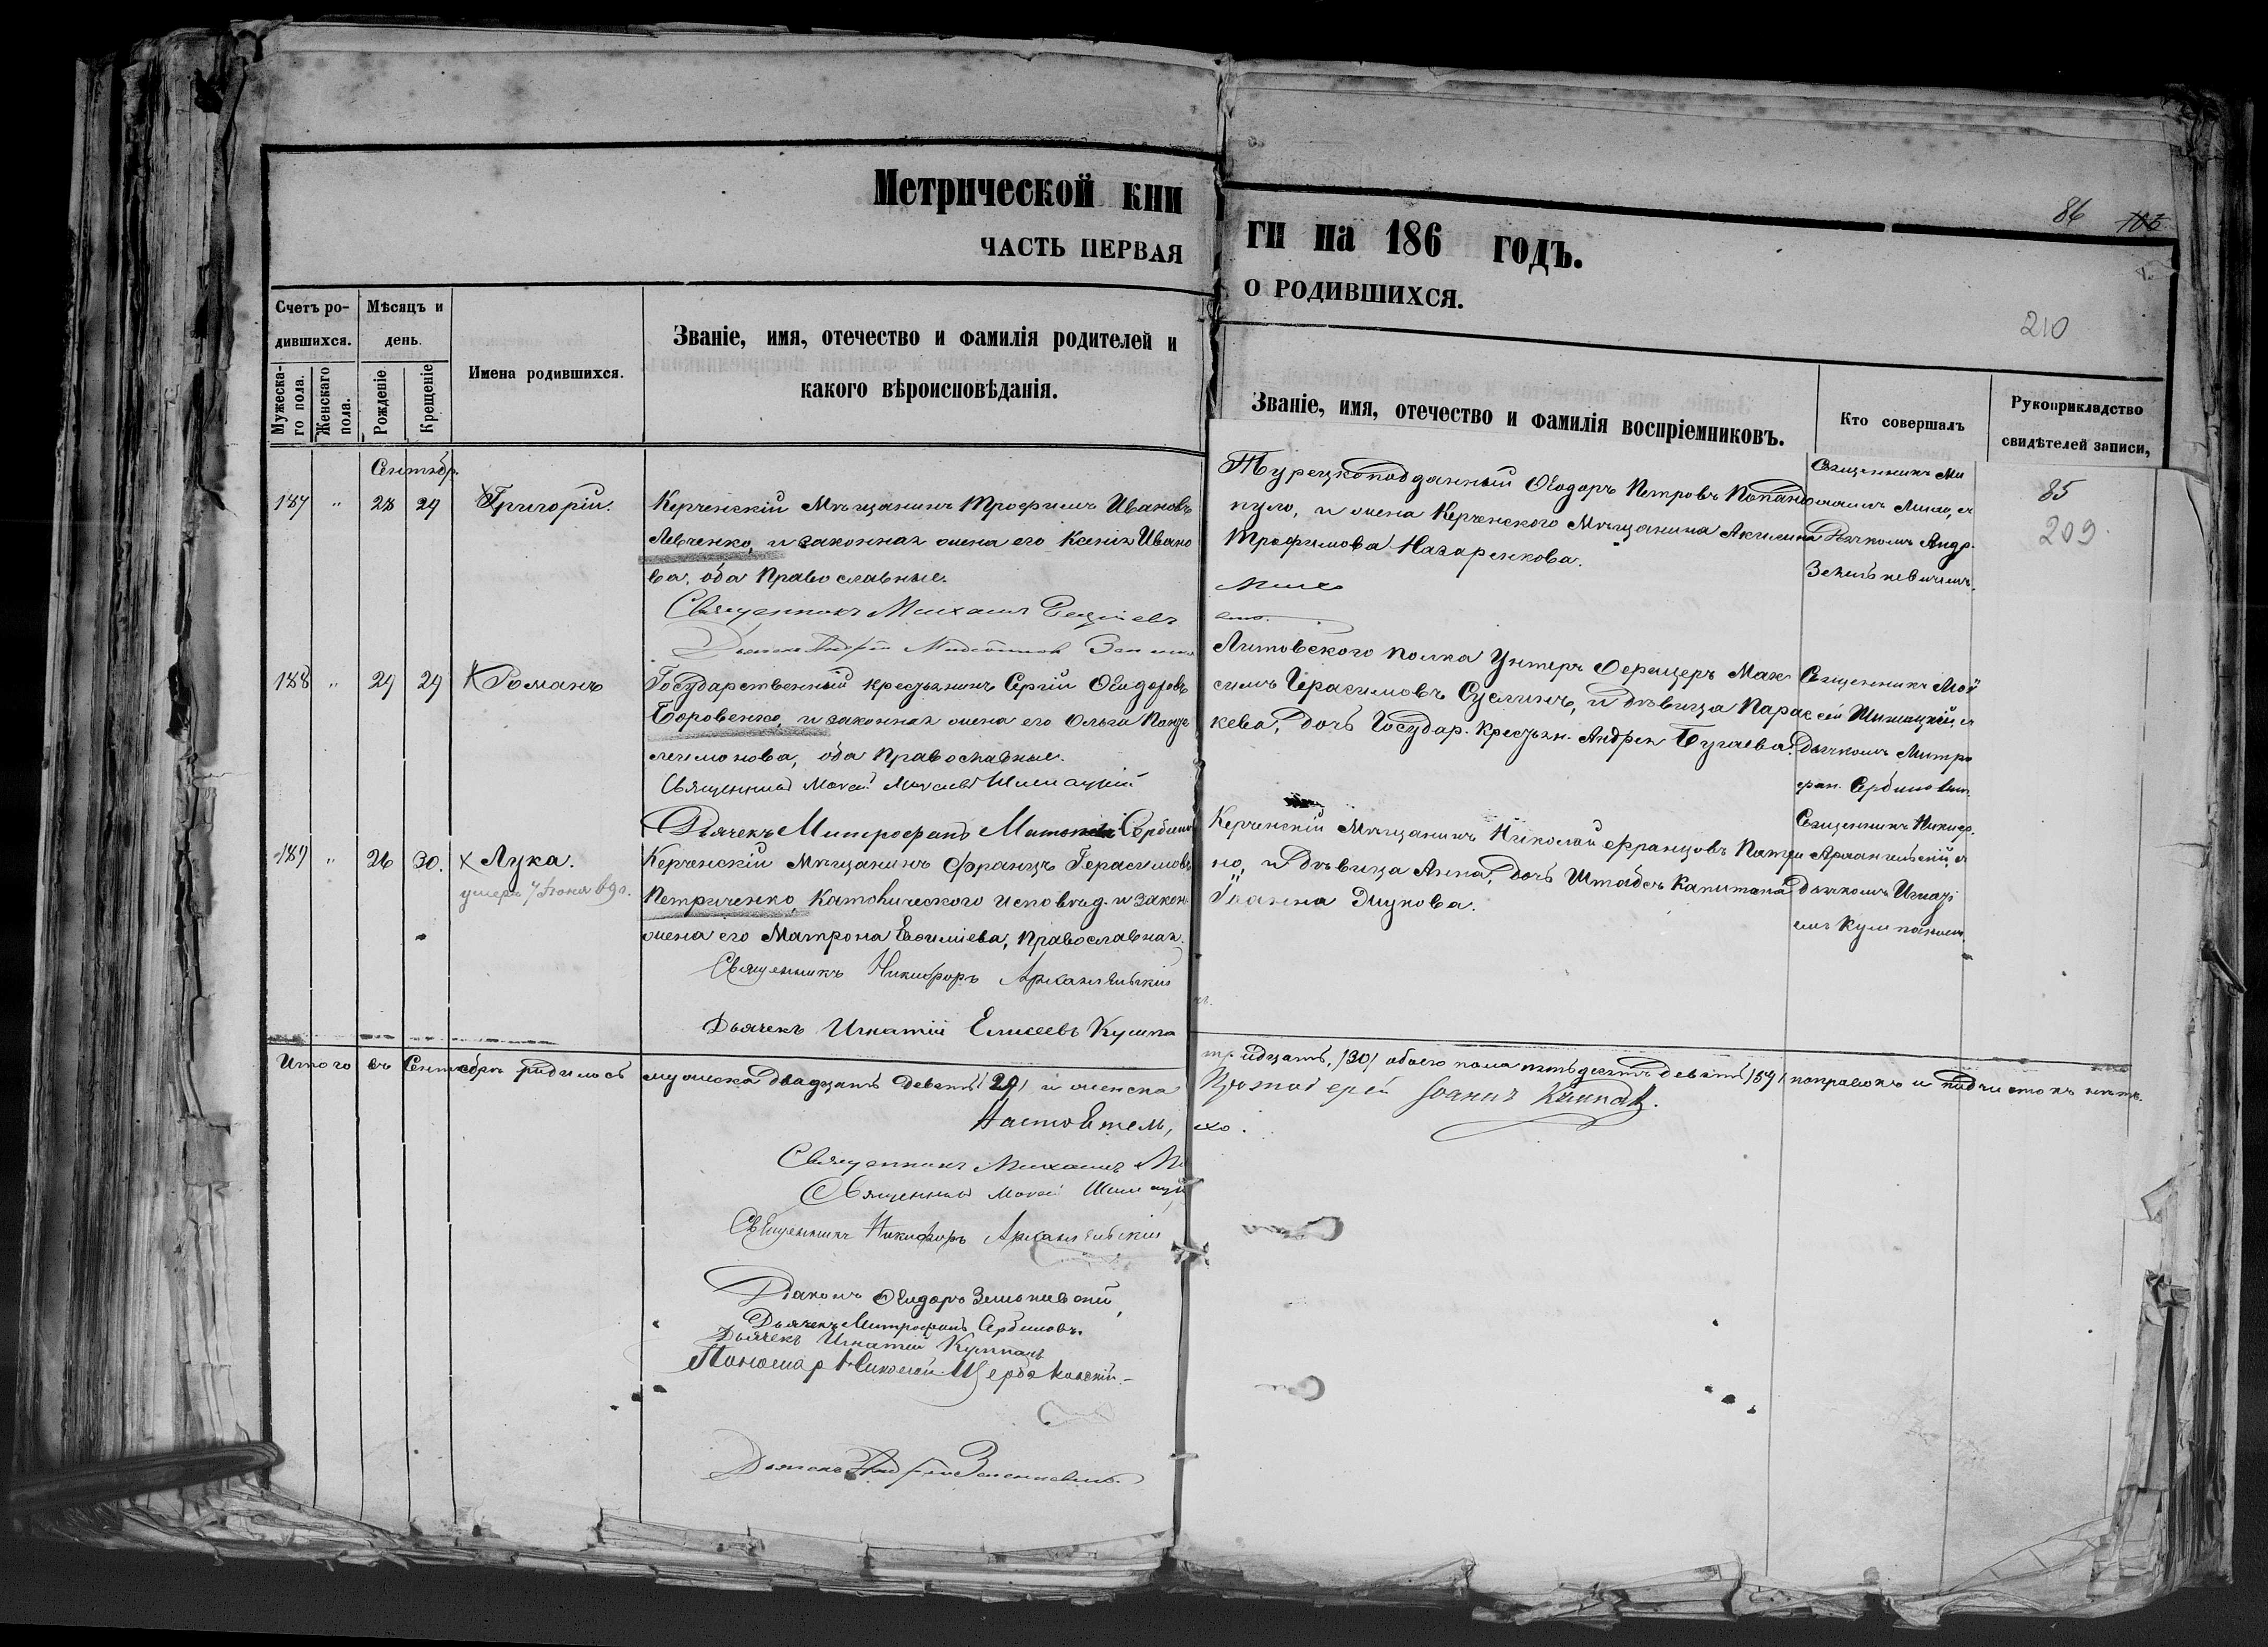 Метрической кни
ги на 186 годъ.
86 103
ЧАСТЬ ПЕРВАЯ
О РОДИВШИХСЯ.
210
Счетъ ро-
дившихся.
Мужеска-
го пола.
Женскаго
пола.
Мѣсяцъ и
день.
Рожденіе.
Крещеніе
Имена родившихся.
Званіе, имя, отечество и фамилія родителей и
какого вѣроисповѣданія.
Званіе, имя, отечество и фамилія воспріемниковъ.
Кто совершалъ
Рукоприкладство
свидѣтелей записи,
Сентябр.
187 " 28 29 Григорій.
Керченскій Мѣщанинъ Трофимъ Ивановъ
Левченко, и законная жена его Ксенія Ивано
ва, оба Православные.
Священникъ Михаилъ
Турецкоподданный Ѳеодоръ Петровъ
пуло, и жена Керченскаго Мѣщанина Акилина
Трофимова Назаренкова.
Священникъ Ми
Дячкомъ Андр.
Зенькевичемъ.
85
209.
188 " 29 29 Романъ
Государственный крестьянинъ Сергій Ѳеодоровъ
Боровенко, и законная жена его Ольга Панте
леимонова, оба Православные.
Священникъ Моѵсей Шиманскій
Дьячекъ Митрофанъ Сербино
Литовского полка Унтеръ Офицеръ Мак
симъ Герасимовъ Суслинъ, и дѣвица Парас
кева, дочь Государ. Крестьян. Андрея Бугаева.
Священникъ Мой
сей
Дьячкомъ Митро
фан. Сербиновым.
189 " 26 30. Лука.
умеръ 7 Іюня 69 г.
Керченскій Мѣщанинъ Францъ Герасимовъ
Петриченко, Католическаго исповѣд. и закон
жена его Матрона Евфиміева, Православная.
Священникъ Никифоръ Архангельскій
Дьячекъ Игнатій Елисеевъ Кушпа
Керченскій Мѣщанинъ Николай Францовъ Петри
но, и дѣвица Анна, дочь Штабсъ Капитана
Іоанна Жукова.
Священникъ Никиф.
Архангельскій, съ
дьячкомъ Игнаті
емъ
Итого въ Сентябрѣ родилось мужеска двадцать девять (29) и женска
тридцать, (30) обоего пола пятьдесятъ девять (59) поправокъ и подчистокъ нѣтъ.
Настоятель,
Протоіерей Іоаннъ
Священникъ Михаилъ
Священникъ Моѵсей
Священникъ Никифоръ Архангельскій
Діаконъ Ѳеодоръ Зенькевскій,
Дьячекъ Митрофанъ Сербиновъ.
Дьячекъ Игнатій Кушпанъ
Пономарь Николай Щербаковскій.
Дьячекъ Андрей Зенкевичъ.